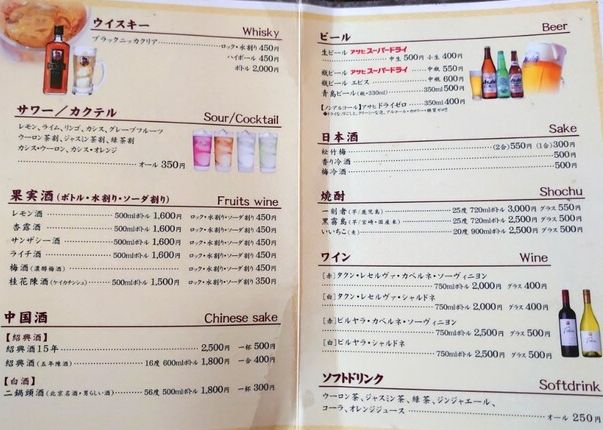 ウイスキー Whisky
ブラックニッカクリア ロック・水割り 450円
ハイボール 450円
ボトル 2,000円
サワー／カクテル Sour/Cocktail
レモン、ライム、リンゴ、カシス、グレープフルーツ
ウーロン茶割、ジャスミン茶割、緑茶割
カシス・ウーロン、カシス・オレンジ
オール 350円
果実酒(ボトル・水割り・ソーダ割り) Fruits wine
レモン酒 500mlボトル 1,600円 ロック・水割り・ソーダ割り 450円
杏露酒 500mlボトル 1,600円 ロック・水割り・ソーダ割り 450円
サンザシー酒 500mlボトル 1,600円 ロック・水割り・ソーダ割り 450円
ライチ酒 500mlボトル 1,600円 ロック・水割り・ソーダ割り 450円
梅酒(濃醇梅酒) ロック・水割り・ソーダ割り 450円
桂花陳酒(ケイカチンシュ) 500mlボトル 1,500円 ロック・水割り・ソーダ割り 350円
中国酒 Chinese sake
【紹興酒】
紹興酒15年 2,500円 一杯 500円
紹興酒(五年陳酒) 16度 600mlボトル 1,800円 一合 400円
【白酒】
二鍋頭酒(北京名酒・男らしい酒) 56度 500mlボトル 1,800円 一杯 300円
ビール Beer
生ビール アサヒスーパードライ 中生 500円 小生 400円
瓶ビール アサヒスーパードライ 中瓶 550円
瓶ビール エビス 中瓶 600円
青島ビール(瓶・330ml) 350ml 500円
【ノンアルコール】アサヒ ドライゼロ 350ml 400円
日本酒 Sake
松竹梅 (2合) 550円 (1合) 300円
香り冷酒 500円
梅冷酒 500円
焼酎 Shochu
一刻者(芋/鹿児島) 25度 720mlボトル 3,000円 グラス 550円
黒霧島(芋/宮崎・国産米) 25度 720mlボトル 2,000円 グラス 500円
いいちこ(麦) 20度 900mlボトル 2,500円 グラス 500円
ワイン Wine
[赤]タクン・レセルヴァ・カベルネ・ソーヴィニヨン
750mlボトル 2,000円 グラス 400円
[白]タクン・レセルヴァ・シャルドネ
750mlボトル 2,000円 グラス 400円
[赤]ビルヤラ・カベルネ・ソーヴィニヨン
750mlボトル 2,500円 グラス 500円
[白]ビルヤラ・シャルドネ
750mlボトル 2,500円 グラス 500円
ソフトドリンク Softdrink
ウーロン茶、ジャスミン茶、緑茶、ジンジャエール、
コーラ、オレンジジュース オール 250円